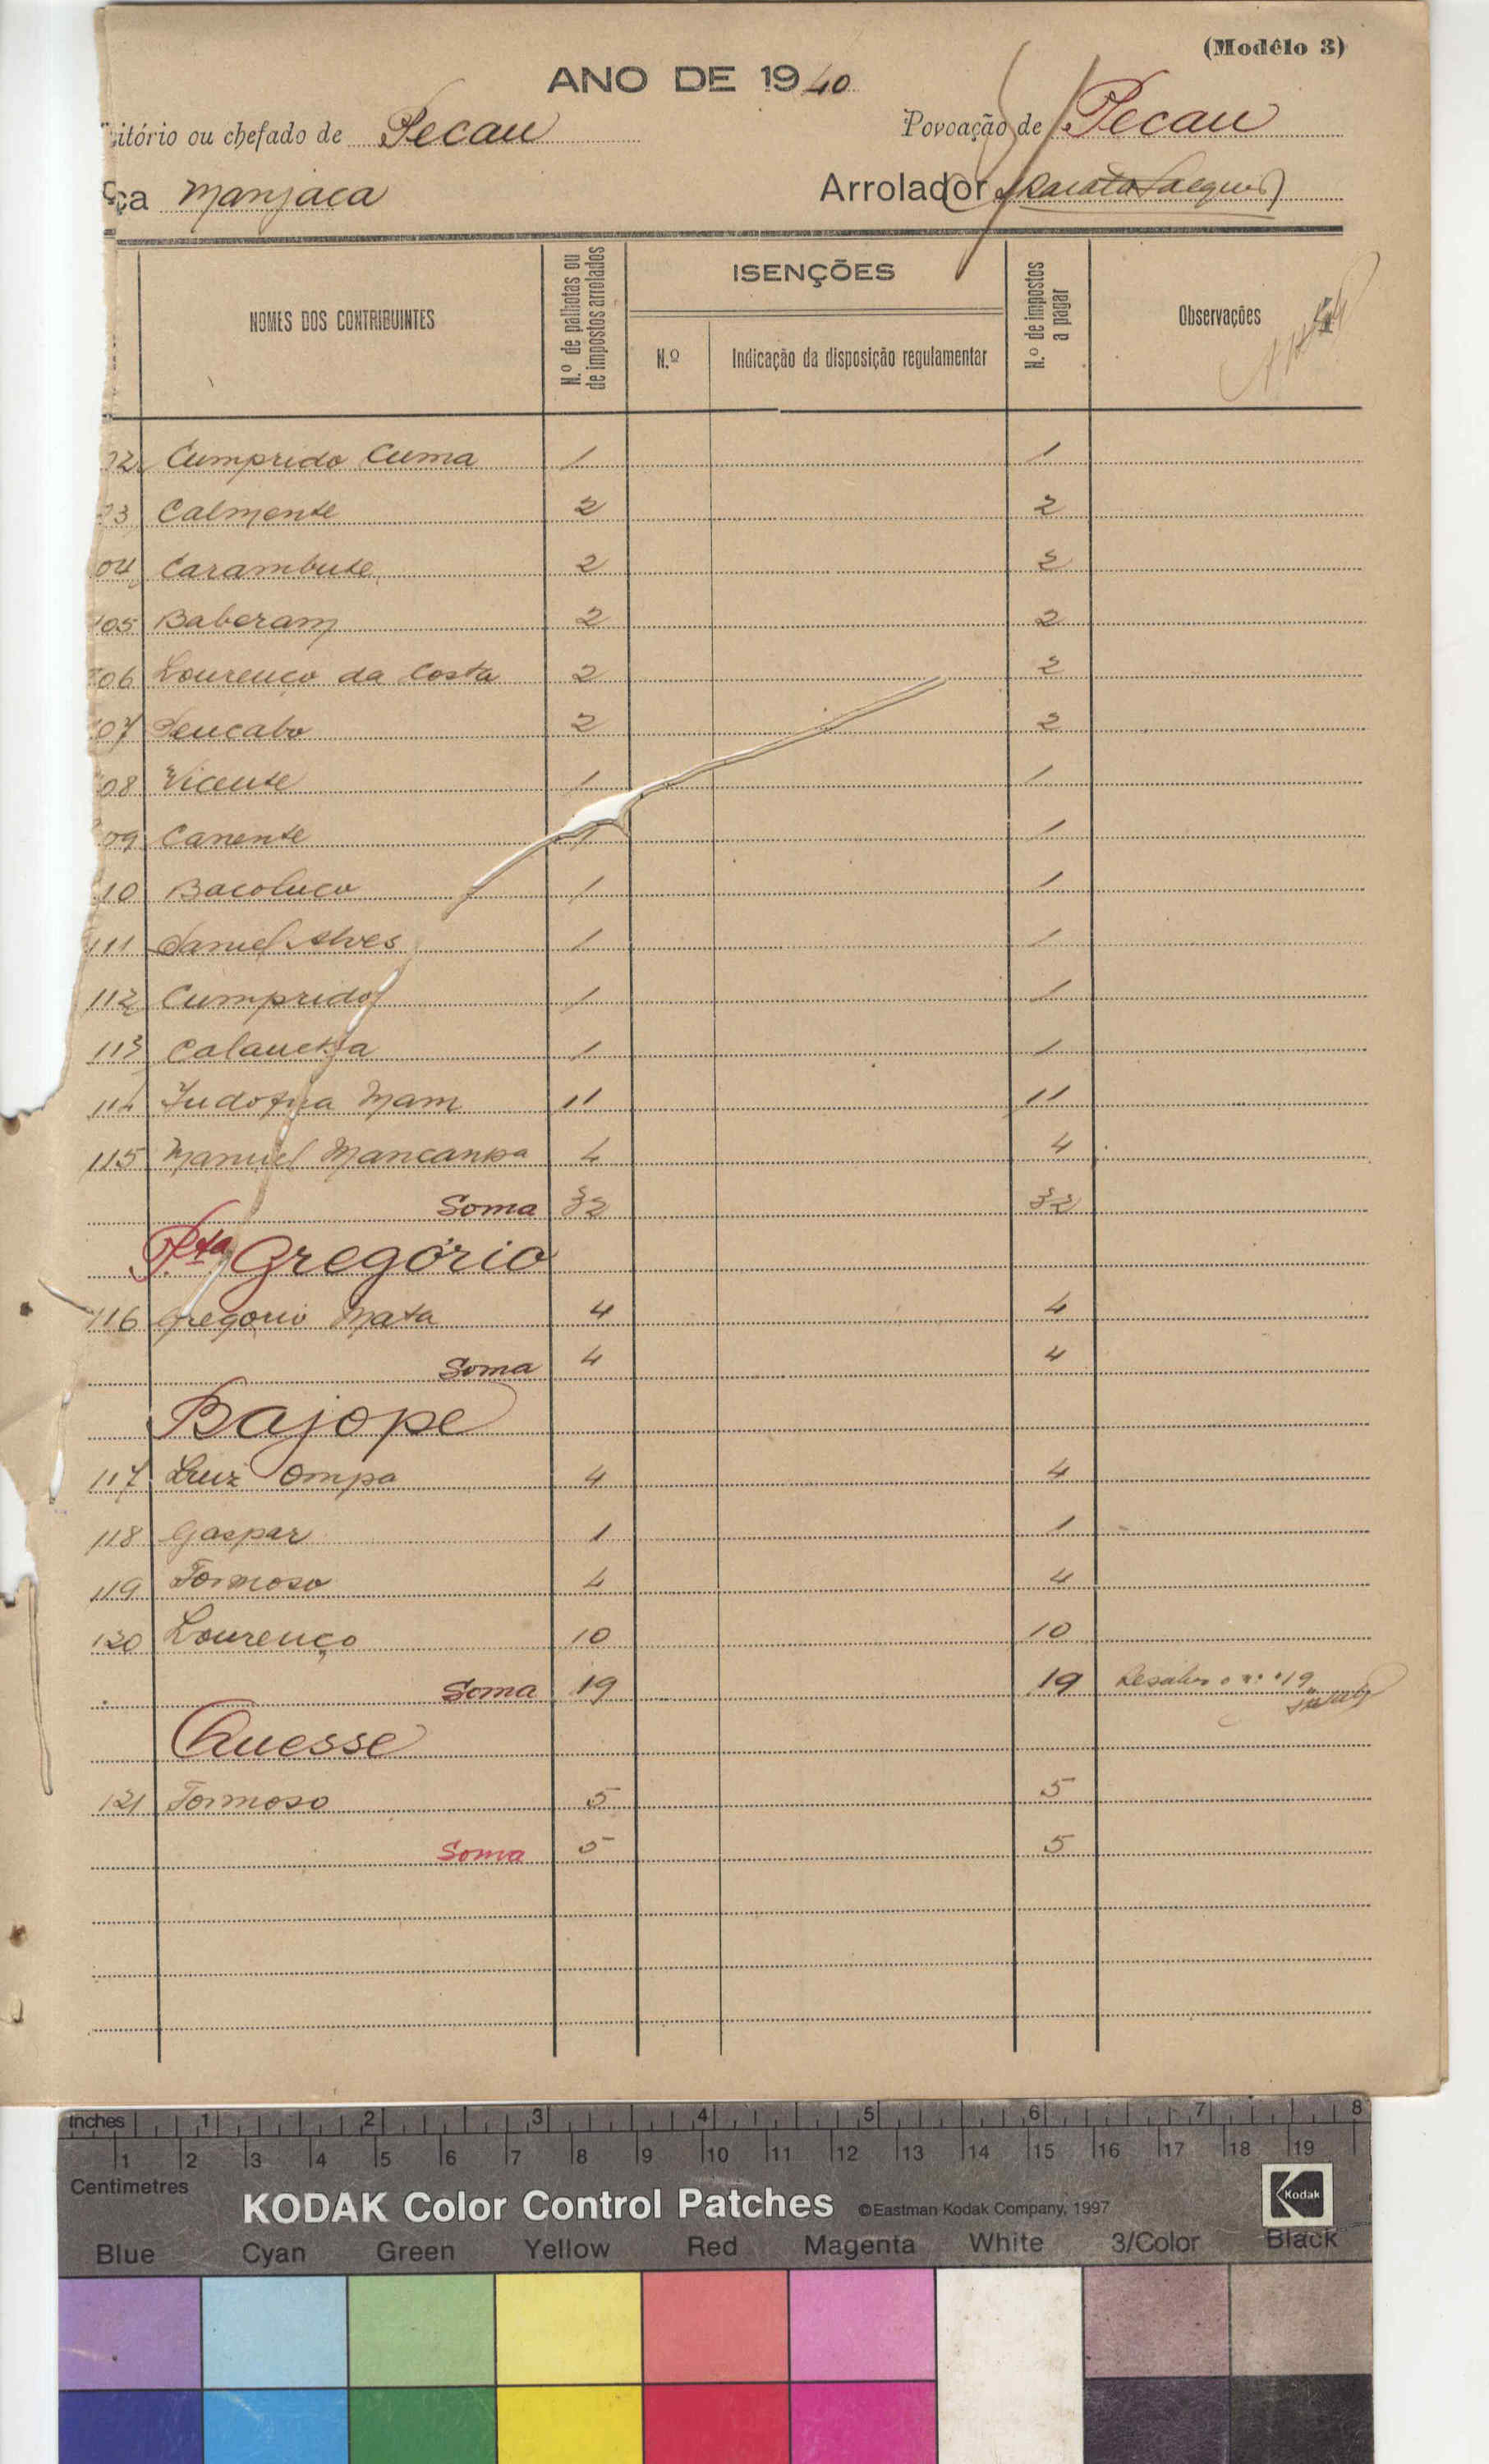 (Modêlo 3)
ANO DE 1940
itório ou chefado de Pecau Povoação de Pecau
ça Manjaca Arrolador
NOMES DOS CONTRIBUINTES N.º de palhotas ou de impostos arrolados ISENÇÕES N.º de impostos a pagar Observações
N.º Indicação da disposição regulamentar
02 Cumprido Cuma 1 1
03 Calmente 2 2
04 Carambute 2 2
105 Baberam 2 2
06 Lourenço da Costa 2 2
07 2 2
08 Vicente 1 1
09 Canente 1 1
10 Bacoluco 1 1
111 Daniel Alves 1 1
112 Cumprido 1 1
113 1 1
114 Mam 11 11
115 Manuel Mancanha 4 4
Soma 32 32
P.ta Gregório
116 Gregorio Mata 4 4
Soma 4 4
Bajope
117 Luiz Ompa 4 4
118 Gaspar 1 1
119 Formoso 4 4
120 Lourenço 10 10
Soma 19 19 Resalvo o n.º 119
Quesse
121 Formoso 5 5
Soma 5 5
inches 1 2 3 4 5 6 7 8
1 2 3 4 5 6 7 8 9 10 11 12 13 14 15 16 17 18 19
Centimetres
KODAK Color Control Patches ©Eastman Kodak Company, 1997 Kodak
Blue Cyan Green Yellow Red Magenta White 3/Color Black